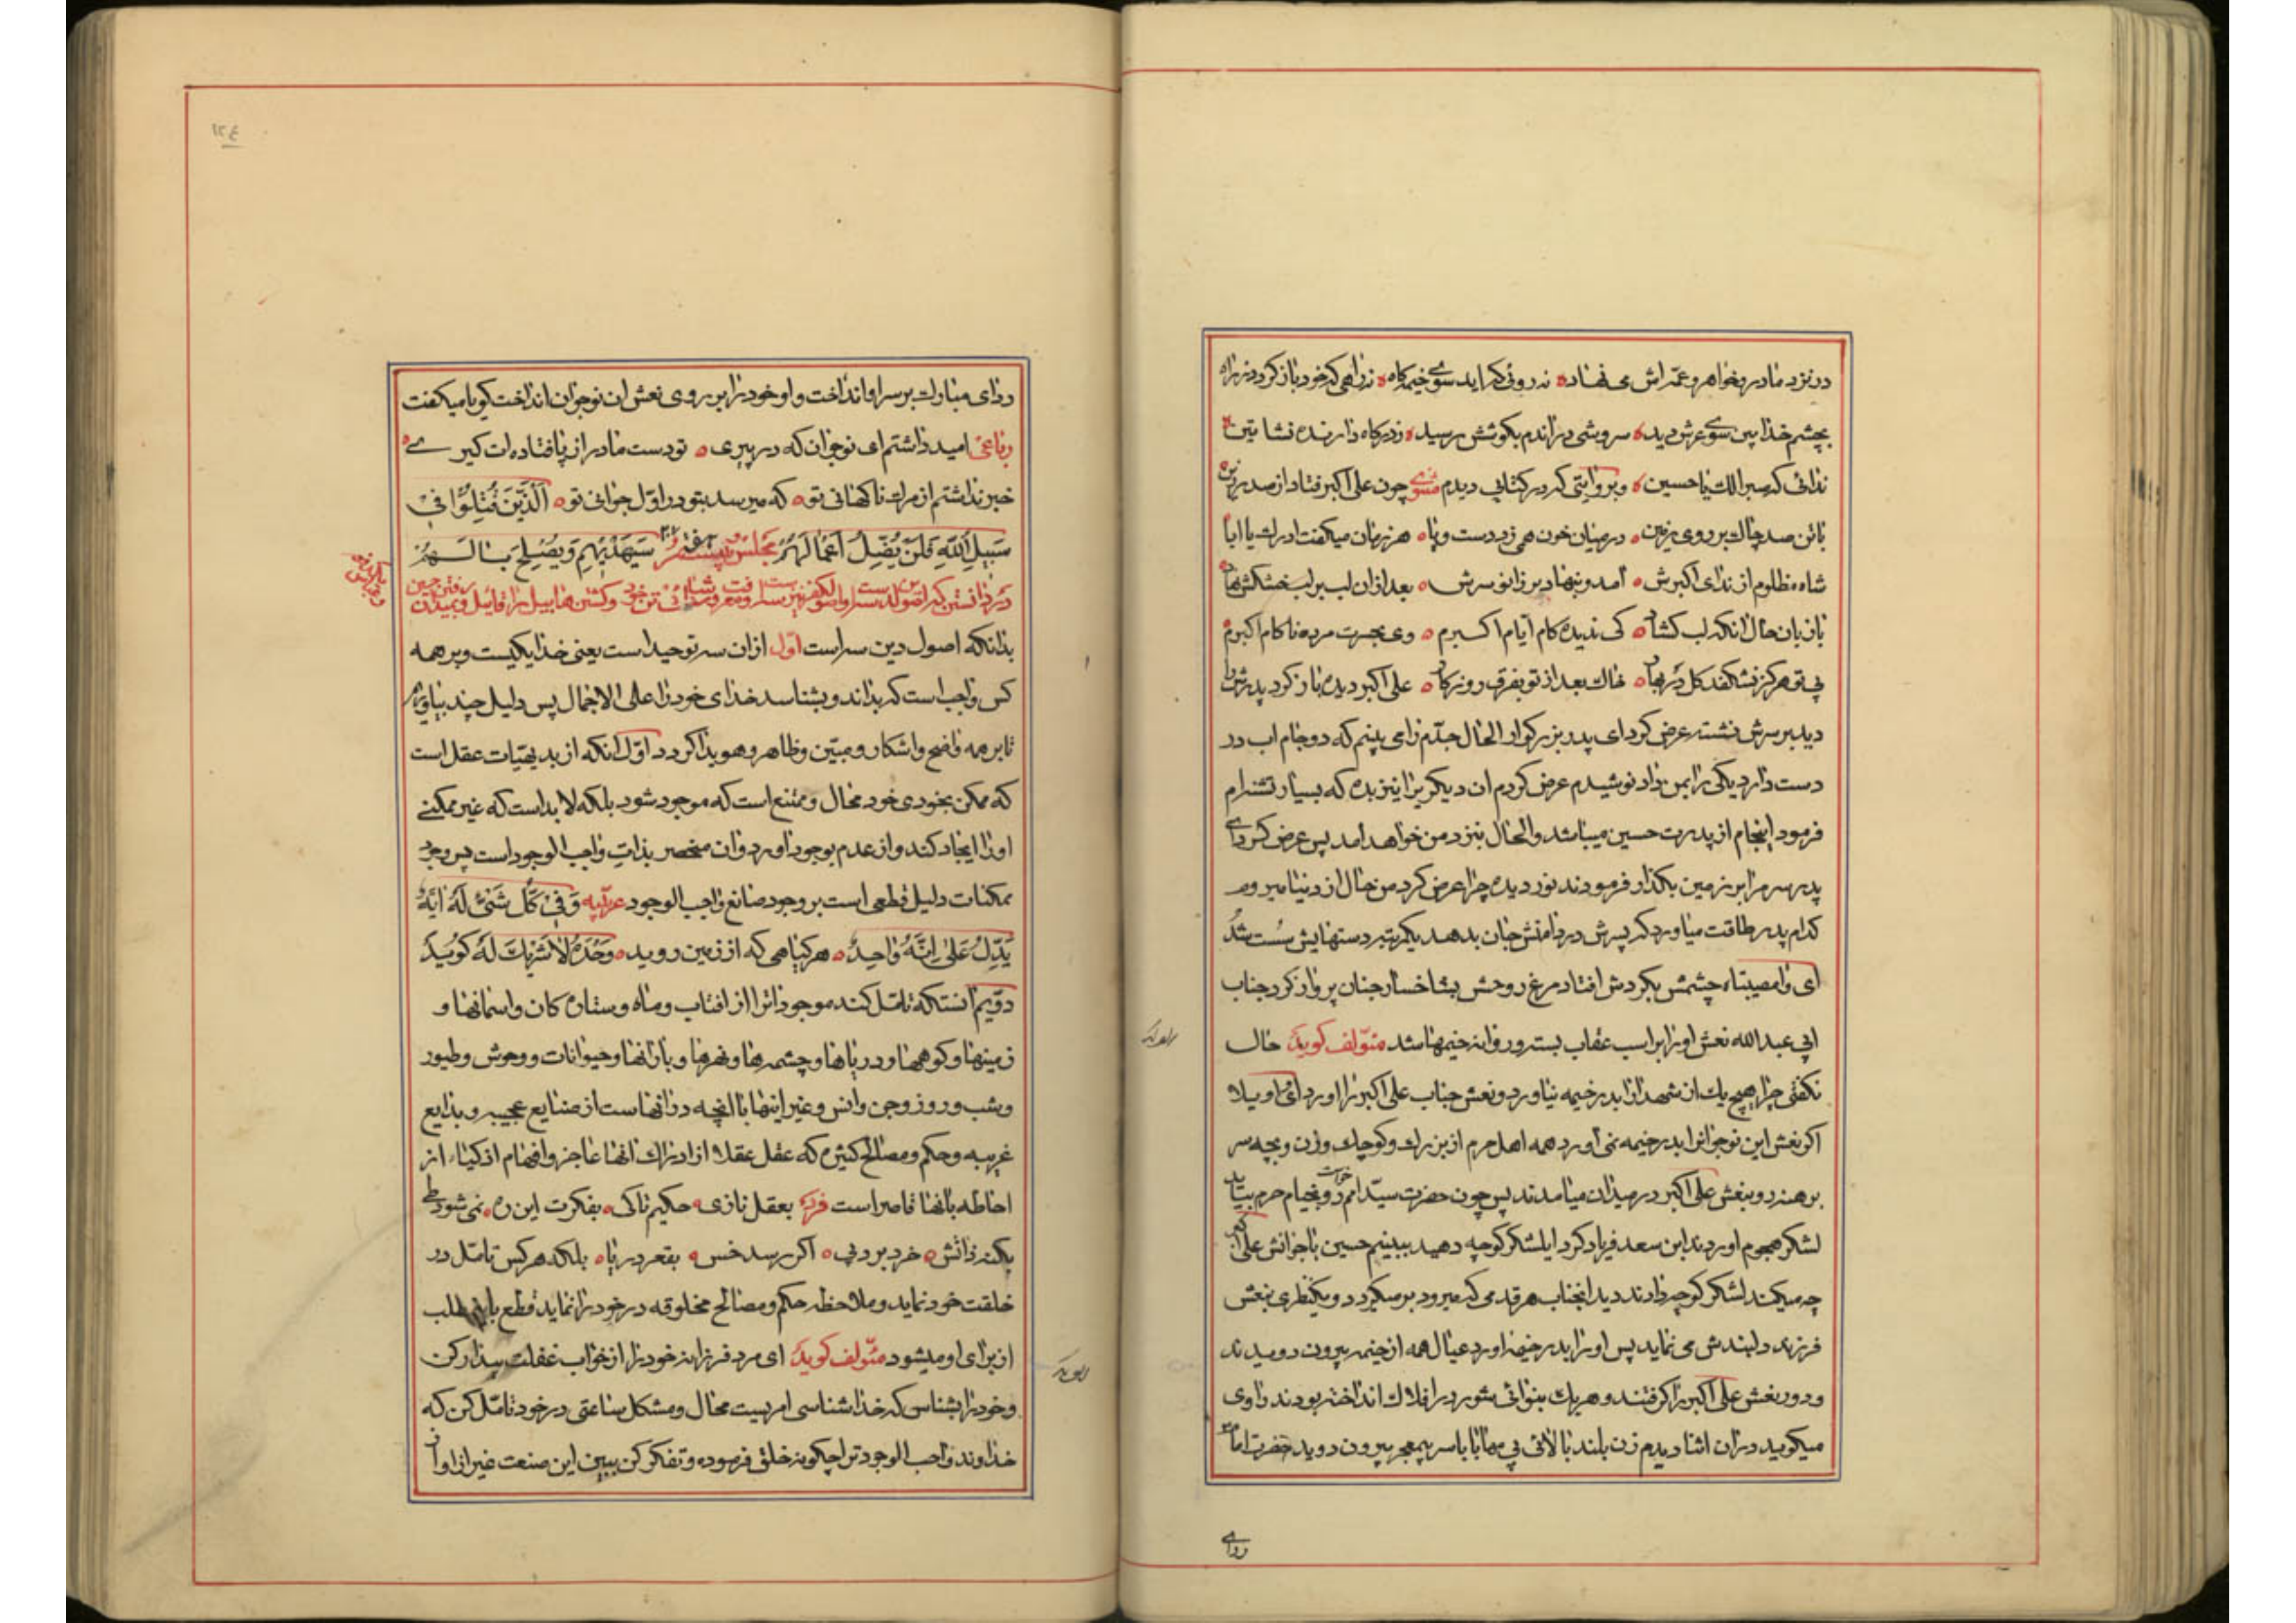 در نزد مادر و خواهر و عمه اش می نهاد ه نه روئی که اید سوی خیمه کاه ه نه راهی که خود باز کردد ز راه
بچشم خدا بین سوی عرش دید ه سروشی در اندم بکوشش رسید ه ز درکاه دارنده نشاتین
ندائی که صبرا لك یا حسین ه و بروایتی که در کتابی دیدم مثنوی چون علی اکبر فتاد از صدر زین
با تن صد چاك بر روی زمین ه در میان خون همی زد دست و پا ه هر زمان میکفت ادرك یا ابا
شاه مظلوم از ندای اکبرش ه آمد و بنهاد بر زانو سرش ه بعد از ان لب بر لب خشکش نهاد
با زبان حال انکه لب کشاد ه کی ندیده کام ایام اکبرم ه وی بحسرت مرده ناکام اکبرم
بی تو هرکز نشکفد کل در بهار ه خاك بعد از تو بفرق روزکار ه علی اکبر دیده باز کرد پدرش را
دید بر سرش نشسته عرض کرد ای پدر بزرکوار الحال جدم را می بینم که دو جام اب در
دست دارد یکی را بمن داد نوشیدم عرض کردم ان دیکریرا نیز بده که بسیار تشنه ام
فرمود اینجام از پدرت حسین میباشد والحال بنزد من خواهد امد پس عرض کرد ای
پدر سر مرا بر زمین بکذار فرمودند نور دیده چرا عرض کرد من حال از دنیا میروم
کدام پدر طاقت میاورد که پسرش در دامنش جان بدهد یکمرتبه دستهایش سست شد
ای وامصیبتاه چشمش بکردش افتاد مرغ روحش بشاخسار جنان پرواز کرد جناب
ابی عبدالله نعش او را بر اسب عقاب بسته و روانه خیمها شد مؤلف کوید حال
نکفتی چرا هیچ یك از شهدا را بدر خیمه نیاورد و نعش جناب علی اکبر را اورد ای واویلا
اکر نعش این نوجوانرا بدر خیمه نمی آورد همه اهل حرم از بزرك و کوچك و زن و بچه سر
برهنه رو بنعش علی اکبر در میدان میامدند پس چون حضرت سید امم خواست رو بخیام حرم بیاید
لشکر هجوم اوردند ابن سعد فریاد کرد ایلشکر کوچه دهید ببینیم حسین با جوانش علی اکبر
چه میکند لشکر کوچه دادند دید انجناب هر قدمی که میرود بر میکردد و یکنظری بنعش
فرزند دلبندش می نماید پس او را بدر خیمه اورد عیال همه از خیمه بیرون دویدند
و دور نعش علی اکبر را کرفتند و هر یك بنوائی شور در افلاك انداخته بودند راوی
میکوید در ان اثنا دیدم زن بلند بالائی بی مهابا با سر بیمعجر بیرون دوید حضرت امام
ردای
ردای مبارك بر سر او انداخت و او خود را بر روی نعش ان نوجوان انداخت کویا میکفت
رباعی امید داشتم ای نوجوان که در پیری ه تو دست مادر از پا فتاده ات کیری
خبر نداشتم از مرك ناکهانی تو ه که میرسد بتو در اول جوانی تو ه اَلَّذینَ قُتِلُوا فی
سَبیلِ اللهِ فَلَنْ یُضِلَّ اَعْمالَهُمْ سَیَهْدیهِمْ وَیُصْلِحُ بالَهُمْ مجلس
بدانکه اصول دین سه است اول از ان سه توحید است یعنی خدا یکیست و بر همه
کس واجب است که بداند و بشناسد خدای خود را علی الاجمال پس دلیل چند بیاورم
تا بر همه واضح و اشکار و مبین و ظاهر و هویدا کردد اول انکه از بدیهیات عقل است
که ممکن بخودی خود محال و ممتنع است که موجود شود بلکه لابد است که غیر ممکنی
او را ایجاد کند و از عدم بوجود اورد و ان منحصر بذات واجب الوجود است پس وجود
ممکنات دلیل قطعی است بر وجود صانع واجب الوجود عربیه وَفی کُلِّ شَیْئٍ لَهُ ایَةٌ
یَدُلُّ عَلی اَنَّهُ واحِدٌ ه هر کیاهی که از زمین روید ه وَحْدَهُ لاشَریكَ لَهُ کوید
دویم انستکه تامل کند موجوداترا از افتاب و ماه و ستاره کان و اسمانها و
زمینها و کوهها و دریاها و چشمه ها و نهرها و بارانها و حیوانات و وحوش و طیور
و شب و روز و جن و انس و غیر اینها با انچه در انهاست از صنایع عجیبه و بدایع
غریبه و حکم و مصالح کثیره که عقل عقلا از ادراك انها عاجز و افهام اذکیاء از
احاطه بانها قاصر است فرد بعقل نازی ه حکیم تا کی ه بفکرت این ره ه نمی شود طی
بکنه ذاتش ه خرد برد پی ه اکر رسد خس ه بقعر دریا ه بلکه هر کس تامل در
خلقت خود نماید و ملاحظه حکم و مصالح مخلوقه در خود را نماید قطع باین مطلب
از برای او میشود مؤلف کوید ای مرد فرزانه خود را از خواب غفلت بیدار کن
و خود را بشناس که خدا شناسی امریست محال و مشکل ساعتی در خود تامل کن که
خداوند واجب الوجود ترا چکونه خلق فرموده و تفکر کن ببین این صنعت غیر از او از